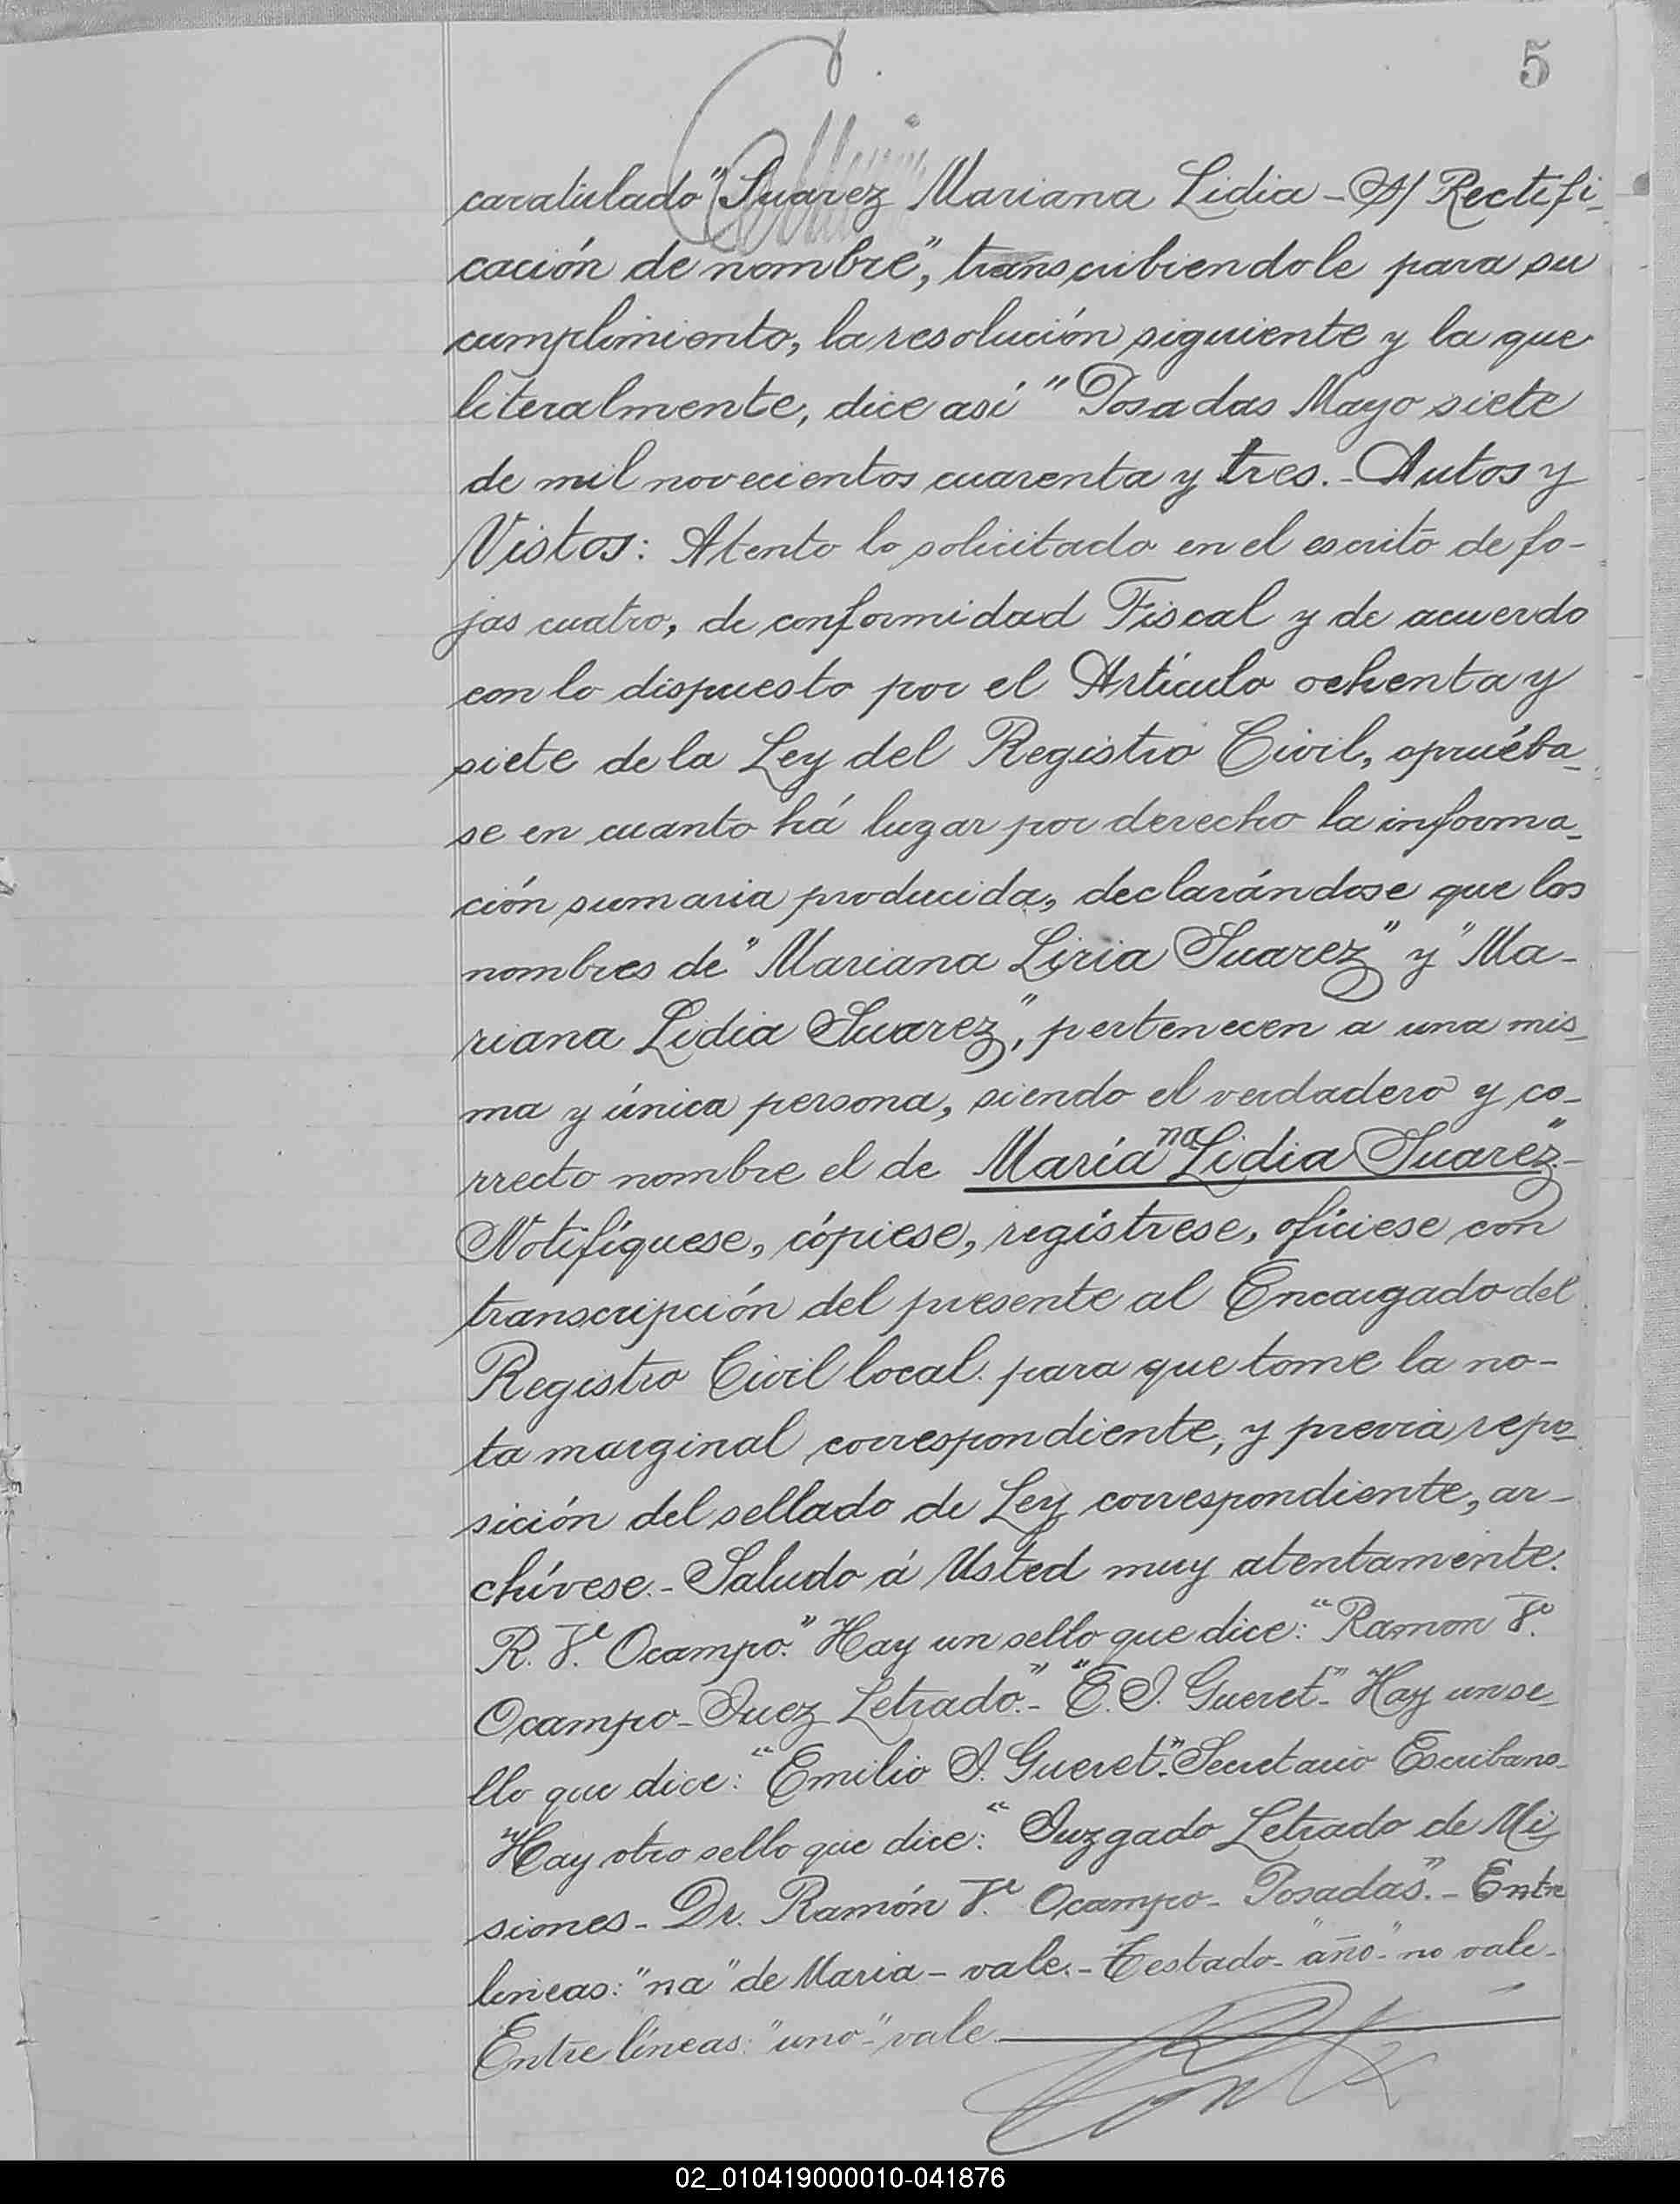 5
caratulado "Suarez Mariana Lidia - S/ Rectifi-
cación de nombre", transcribiendole para su
cumplimiento, la resolución siguiente y la que
literalmente, dice así "Posadas Mayo siete
de mil novecientos cuarenta y tres.- Autos y
Vistos: Atento lo solicitado en el escrito de fo-
jas cuatro, de conformidad Fiscal y de acuerdo
con lo dispuesto por el Artículo ochenta y
siete de la Ley del Registro Civil, apruéba-
se en cuanto há lugar por derecho la informa-
ción sumaria producida, declarándose que los
nombres de "Mariana Liria Suarez" y "Ma-
riana Lidia Suarez", pertenecen a una mis-
ma y única persona, siendo el verdadero y co-
rrecto nombre el de María na Lidia Suarez".-
Notifíquese, cópiese, regístrese, ofíciese con
transcripción del presente al Encargado del
Registro Civil local para que tome la no-
ta marginal correspondiente, y previa repo-
sición del sellado de Ley correspondiente, ar-
chívese.- Saludo á Usted muy atentamente.
R. Fe. Ocampo." Hay un sello que dice: "Ramon Fe.
Ocampo - Juez Letrado".- "E. I. Gueret".- Hay un se-
llo que dice: "Emilio I. Gueret".- Secretario Escribano-
Hay otro sello que dice: "Juzgado Letrado de Mi-
siones - Dr. Ramón Fe. Ocampo - Posadas".- Entre
lineas: "na" de Maria - vale.- Testado - "año" - no vale-
Entre líneas: "uno" - vale
02_010419000010-041876